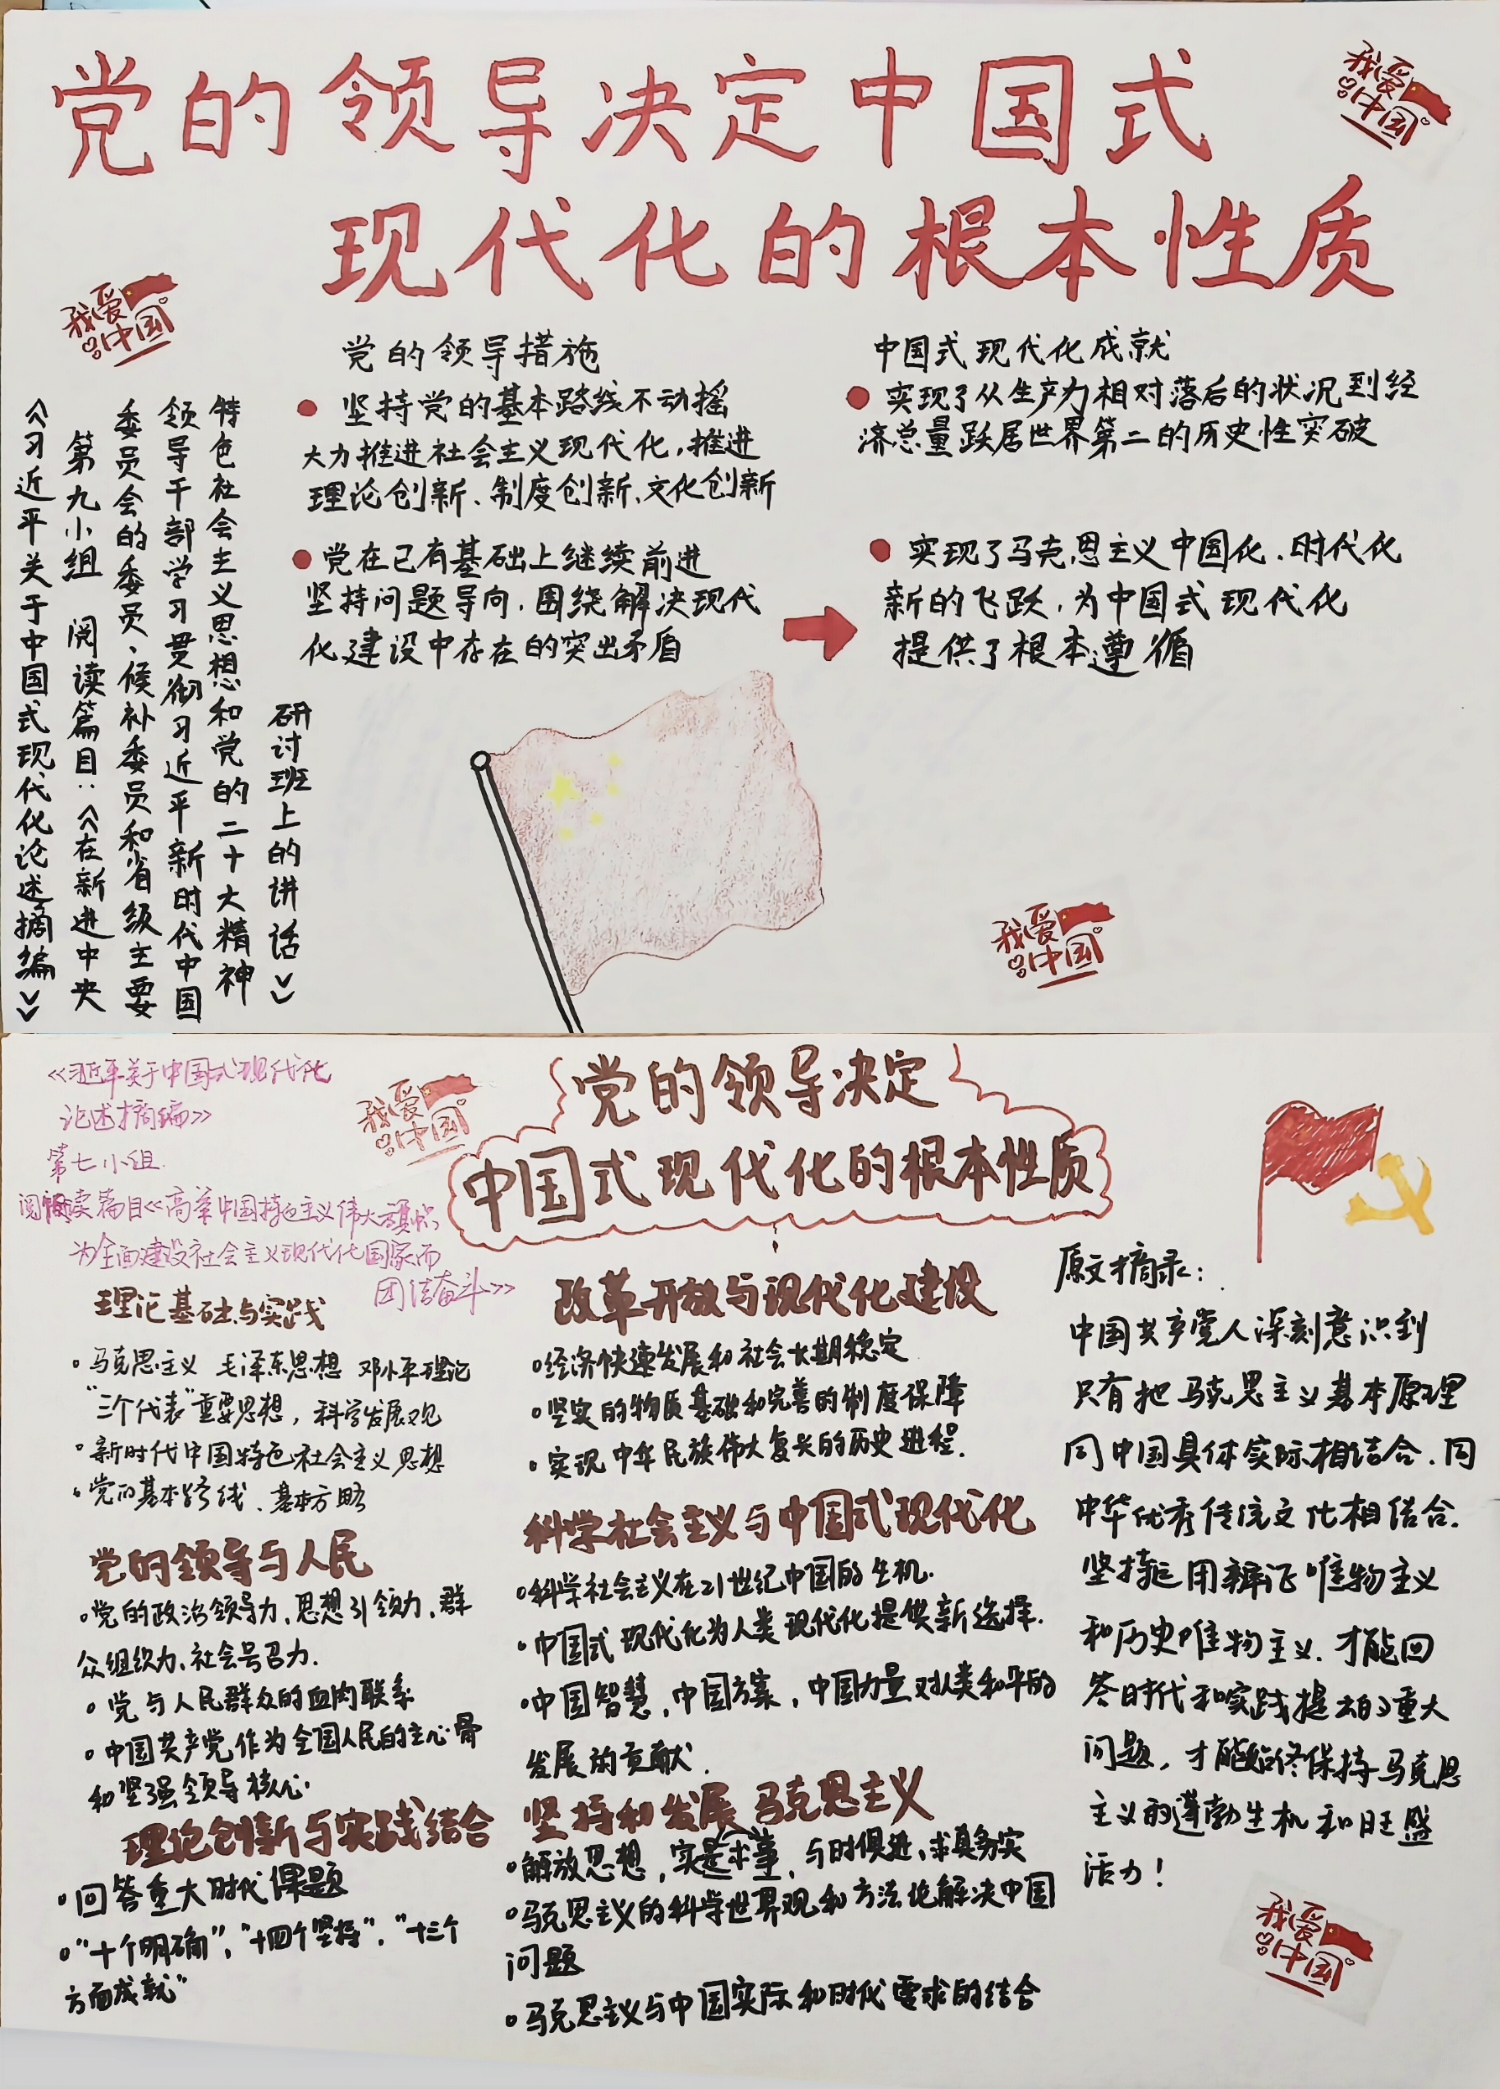 党的领导决定中国式
现代化的根本性质
我爱
中国
我爱
中国
党的领导措施
坚持党的基本路线不动摇
大力推进社会主义现代化,推进
理论创新、制度创新、文化创新
党在已有基础上继续前进
坚持问题导向,围绕解决现代
化建设中存在的突出矛盾
中国式现代化成就
实现了从生产力相对落后的状况到经
济总量跃居世界第二的历史性突破
实现了马克思主义中国化、时代化
新的飞跃,为中国式现代化
提供了根本遵循
《习近平关于中国式现代化论述摘编》
第九小组 阅读篇目:《在新进中央
委员会的委员、候补委员和省级主要
领导干部学习贯彻习近平新时代中国
特色社会主义思想和党的二十大精神
研讨班上的讲话》
我爱
中国
《习近平关于中国式现代化
论述摘编》
第七小组
阅读篇目《高举中国特色主义伟大旗帜
为全面建设社会主义现代化国家而
团结奋斗》
我爱
中国
党的领导决定
中国式现代化的根本性质
理论基础与实践
马克思主义 毛泽东思想 邓小平理论
“三个代表”重要思想,科学发展观
新时代中国特色社会主义思想
党的基本路线、基本方略
党的领导与人民
党的政治领导力、思想引领力、群
众组织力、社会号召力.
党与人民群众的血肉联系
中国共产党作为全国人民的主心骨
和坚强领导核心
理论创新与实践结合
回答重大时代课题
“十个明确”,“十四个坚持”,“十三个
方面成就”
改革开放与现代化建设
经济快速发展和社会长期稳定
坚实的物质基础和完善的制度保障
实现中华民族伟大复兴的历史进程.
科学社会主义与中国式现代化
科学社会主义在21世纪中国的生机.
中国式现代化为人类现代化提供新选择.
中国智慧,中国方案,中国力量对人类和平的
发展的贡献.
坚持和发展马克思主义
解放思想,实是求事,与时俱进、求真务实
马克思主义的科学世界观和方法论解决中国
问题
马克思主义与中国实际和时代需求的结合
原文摘录:
中国共产党人深刻意识到
只有把马克思主义基本原理
同中国具体实际相结合、同
中华优秀传统文化相结合.
坚持运用辩证唯物主义
和历史唯物主义.才能回
答时代和实践提出的重大
问题,才能始终保持马克思
主义的蓬勃生机和旺盛
活力!
我爱
中国